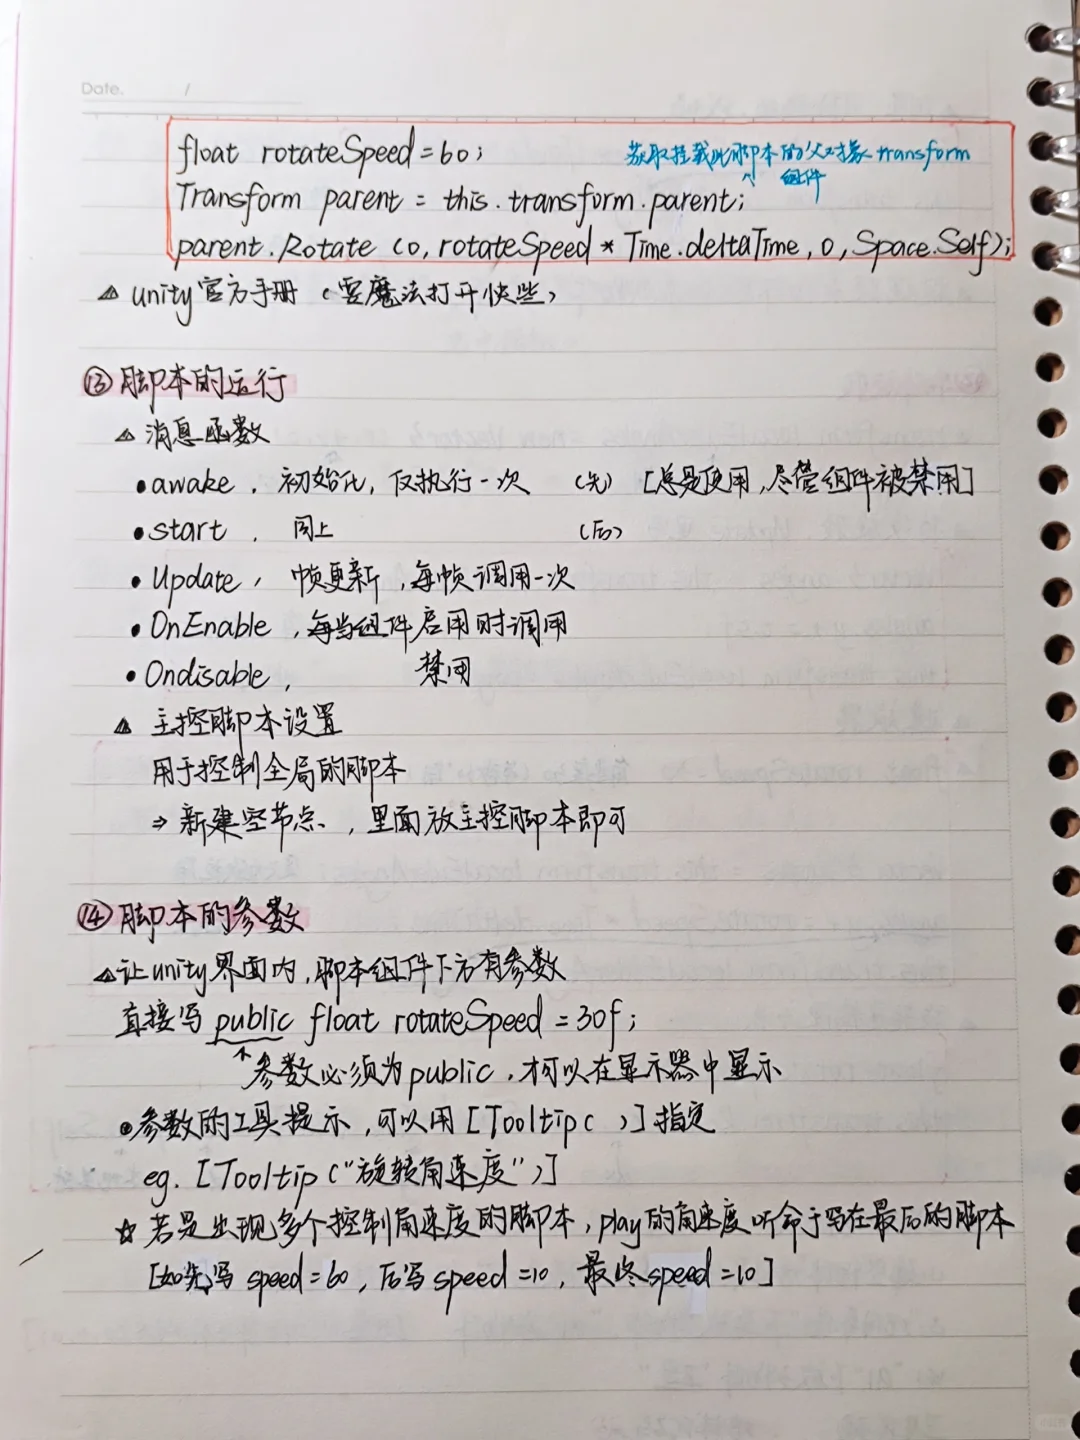 Date. /
float rotateSpeed = 60;
获取挂载此脚本的父对象 transform
组件
Transform parent = this.transform.parent;
parent.Rotate (0, rotateSpeed * Time.deltaTime, 0, Space.Self);
△ unity官方手册 (要魔法打开快些)
⑬ 脚本的运行
△ 消息函数
• awake, 初始化, 仅执行一次 (先) [总是使用, 尽管组件被禁用]
• start, 同上 (后)
• Update, 帧更新, 每帧调用一次
• OnEnable, 每当组件启用时调用
• Ondisable, 禁用
△ 主控脚本设置
用于控制全局的脚本
⇒ 新建空节点, 里面放主控脚本即可
⑭ 脚本的参数
△ 让unity界面内, 脚本组件下方有参数
直接写 public float rotateSpeed = 30f;
↑ 参数必须为public, 才可以在显示器中显示
• 参数的工具提示, 可以用 [Tooltip( )] 指定
eg. [Tooltip("旋转角速度")]
☆ 若是出现多个控制角速度的脚本, play的角速度听命于写在最后的脚本
[如先写 speed = 60, 后写 speed = 10, 最终 speed = 10]